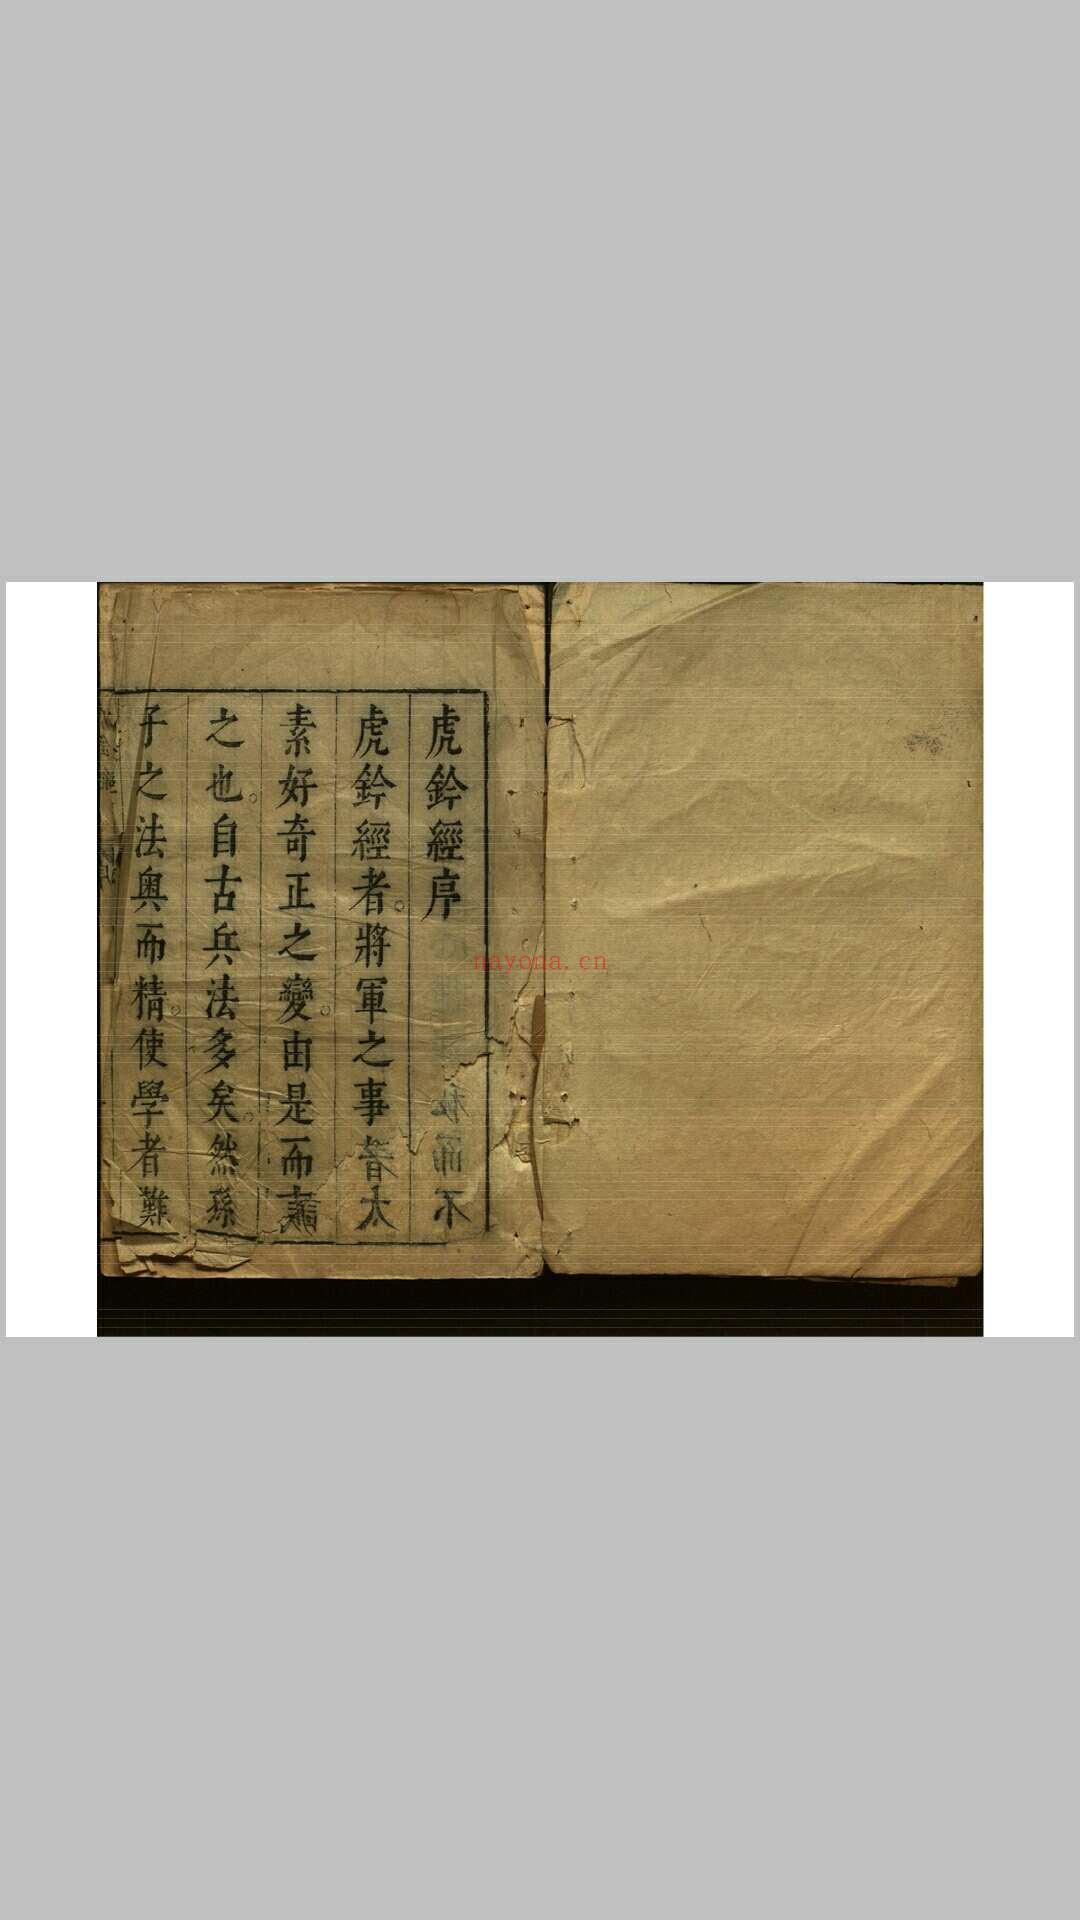 虎鈐經序
虎鈐經者。將軍之事
素好奇正之變。由是而
之也。自古兵法多矣。然孫
子之法奥而精。使學者難
nayona.cn